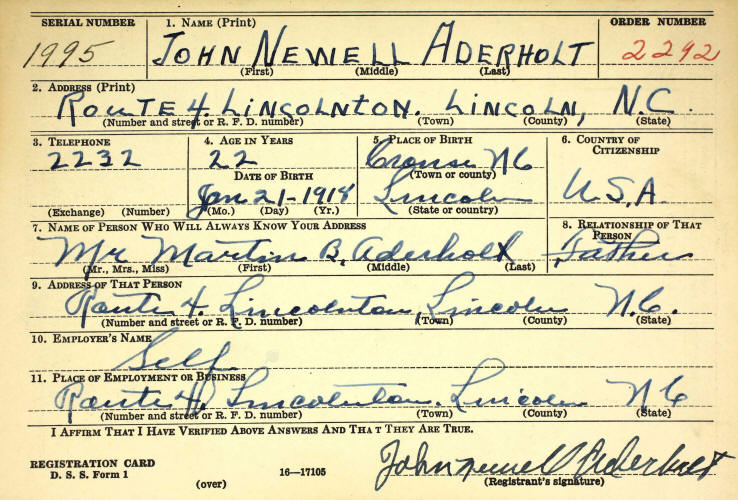 SERIAL NUMBER 1. NAME (Print) ORDER NUMBER
1995 JOHN NEWELL ADERHOLT 2292
(First) (Middle) (Last)
2. ADDRESS (Print)
ROUTE 4. LINCOLNTON. LINCOLN, N.C.
(Number and street or R. F. D. number) (Town) (County) (State)
3. TELEPHONE 4. AGE IN YEARS 5. PLACE OF BIRTH 6. COUNTRY OF CITIZENSHIP
2232 22 Crouse NC
DATE OF BIRTH (Town or county)
Jan. 21-1918 Lincoln U.S.A.
(Exchange) (Number) (Mo.) (Day) (Yr.) (State or country)
7. NAME OF PERSON WHO WILL ALWAYS KNOW YOUR ADDRESS 8. RELATIONSHIP OF THAT PERSON
Mr Martin B. Aderholt Father
(Mr., Mrs., Miss) (First) (Middle) (Last)
9. ADDRESS OF THAT PERSON
Route 4. Lincolnton, Lincoln N.C.
(Number and street or R. F. D. number) (Town) (County) (State)
10. EMPLOYER'S NAME
Self
11. PLACE OF EMPLOYMENT OR BUSINESS
Route 4. Lincolnton. Lincoln NC
(Number and street or R. F. D. number) (Town) (County) (State)
I AFFIRM THAT I HAVE VERIFIED ABOVE ANSWERS AND THAT THEY ARE TRUE.
John Newell Aderholt
REGISTRATION CARD
D. S. S. Form 1 (over) 16—17105 (Registrant's signature)